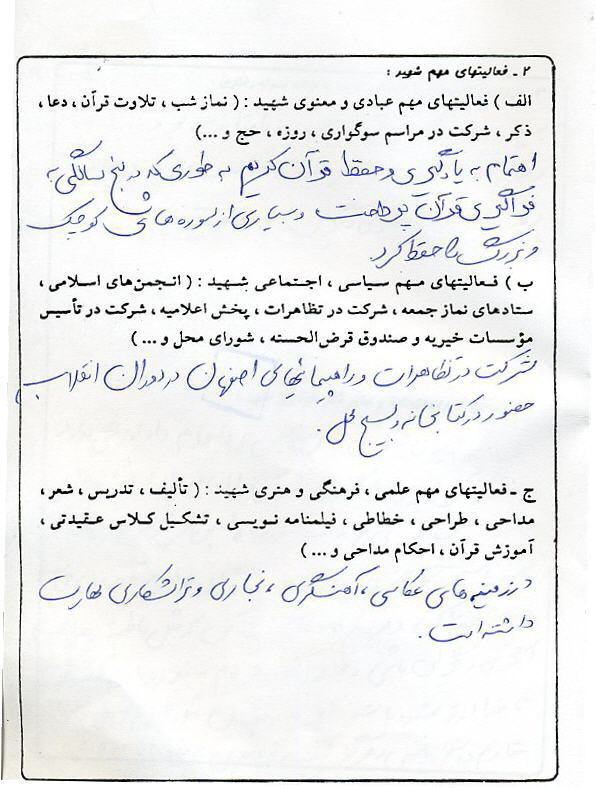 ۲ ـ فعالیتهای مهم شهید :
الف ) فعالیتهای مهم عبادی و معنوی شهید : ( نماز شب ، تلاوت قرآن ، دعا ،
ذکر ، شرکت در مراسم سوگواری ، روزه ، حج و ... )
اهتمام به یادگیری و حفظ قرآن کریم به طوری که در پنج سالگی به
فراگیری قرآن پرداخت و بسیاری از سوره های کوچک
و بزرگ را حفظ کرد
ب ) فعالیتهای مهم سیاسی ، اجتماعی شهید : ( انجمن‌های اسلامی ،
ستادهای نماز جمعه ، شرکت در تظاهرات ، پخش اعلامیه ، شرکت در تأسیس
مؤسسات خیریه و صندوق قرض‌الحسنه ، شورای محل و ... )
شرکت در تظاهرات و راهپیمائیهای اصفهان در دوران انقلاب
حضور در کتابخانه و بسیج محل .
ج ـ فعالیتهای مهم علمی ، فرهنگی و هنری شهید : ( تألیف ، تدریس ، شعر ،
مداحی ، طراحی ، خطاطی ، فیلمنامه نویسی ، تشکیل کلاس عقیدتی ،
آموزش قرآن ، احکام مداحی و ... )
در زمینه های عکاسی ، آهنگری ، نجاری و تراشکاری مهارت
داشته است .